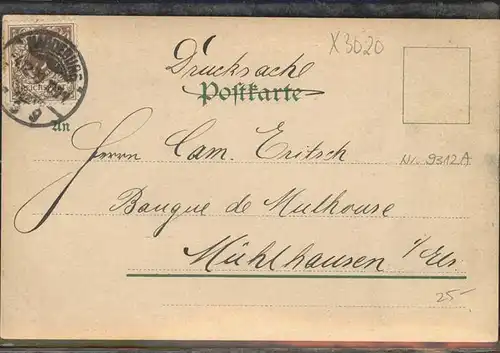 X 3020
Drucksache
Postkarte
An
Herrn Cam. Eritsch
Nr. 9312A
Banque de Mulhouse
Mühlhausen i/Els
25-